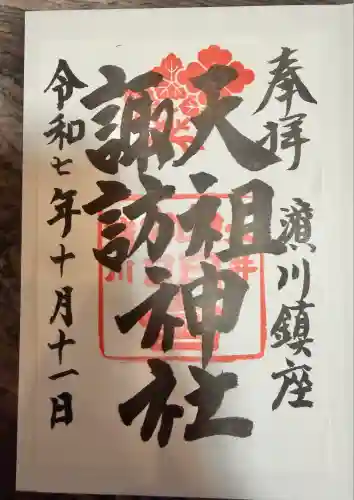 奉拝
濵川鎮座
天祖神社
諏訪神社
令和七年十月十一日